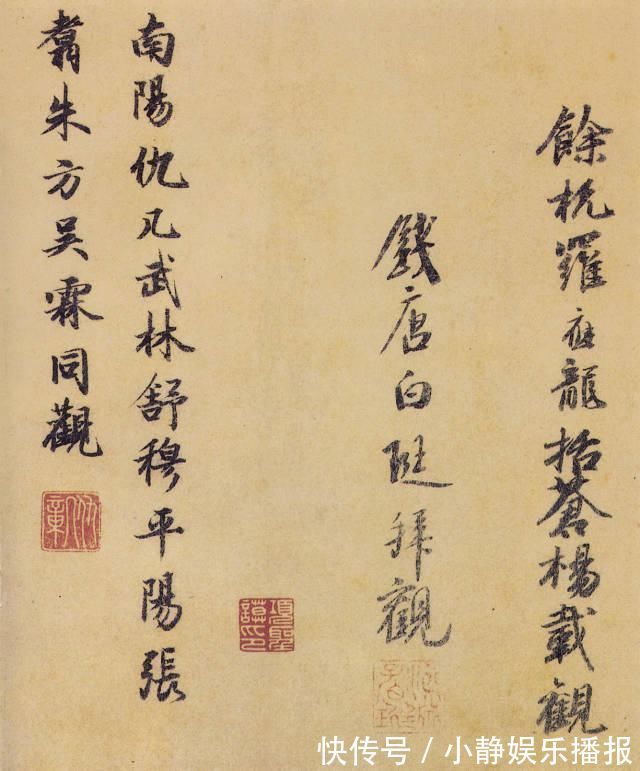 餘杭羅應龍括蒼楊載觀
錢唐白珽拜觀
南陽仇几武林舒穆平陽張
翥朱方吳霖同觀
項聖謨印
快传号/小静娱乐播报